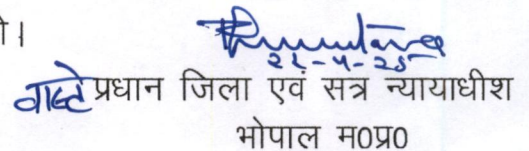 ।
२८-५-२५
वास्ते प्रधान जिला एवं सत्र न्यायाधीश
भोपाल म0प्र0